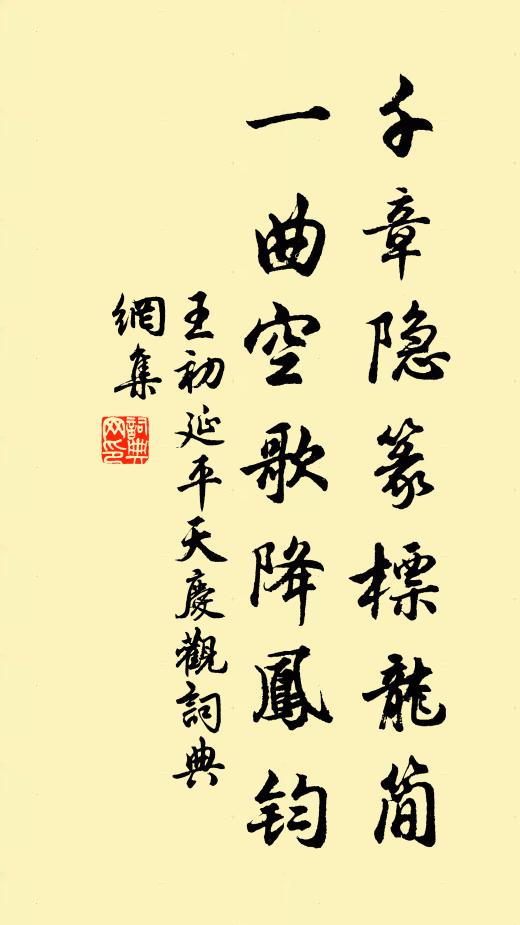 千章隐篆標龍简
一曲空歌降鳳钧
王初延平天慶觀詞典
網集
詞典
网印